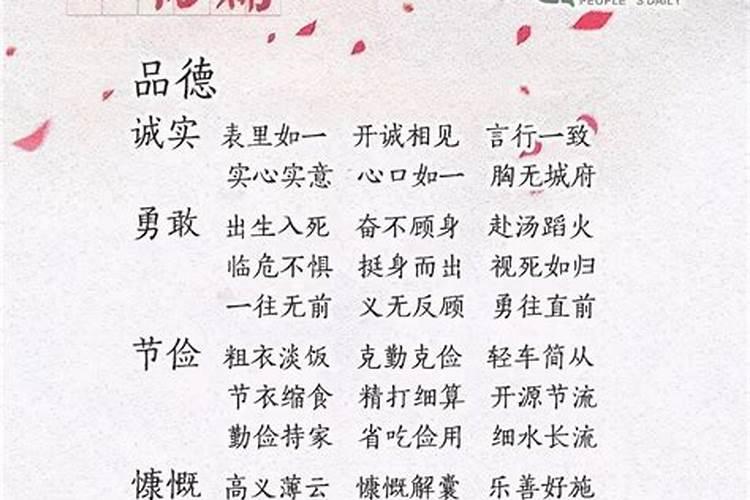 PEOPLE'S DAILY
品德
诚实 表里如一 开诚相见 言行一致
实心实意 心口如一 胸无城府
勇敢 出生入死 奋不顾身 赴汤蹈火
临危不惧 挺身而出 视死如归
一往无前 义无反顾 勇往直前
节俭 粗衣淡饭 克勤克俭 轻车简从
节衣缩食 精打细算 开源节流
勤俭持家 省吃俭用 细水长流
慷慨 高义薄云 慷慨解囊 乐善好施